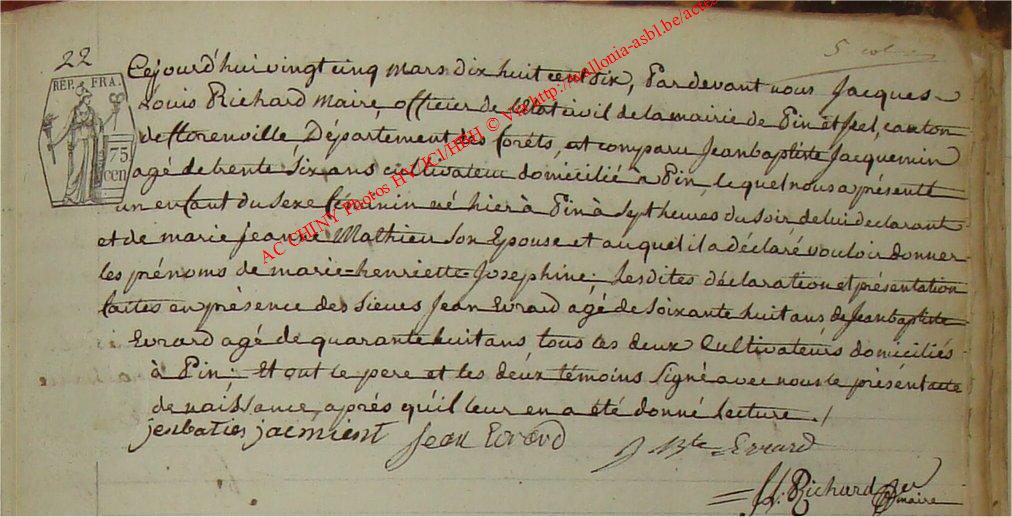 22
RÉP. FRA.
75
cen
Cejourd'hui vingt cinq mars dix huit cent dix, Pardevant nous Jacques
Louis Richard Maire, officier de l'état civil de la mairie de Pin et Izel, canton
de florenville Département des forêts, est comparu Jeanbaptiste Jacquemin
agé de trente Six ans cultivateur domicilié à Pin, lequel nous a présenté
un enfant du Sexe féminin né hier à Pin à Sept heures du Soir de lui declarant
et de marie Jeanne Mathieu Son Epouse et auquel il a déclaré vouloir donner
les prénoms de marie-henriette-Josephine; lesdites déclaration et présentation
faites en présence des Sieurs Jean Evrard agé de Soixante huit ans de Jeanbaptiste
Evrard agé de quarante huit ans tous les deux Cultivateurs domiciliés
à Pin; Et ont le pere et les deux témoins Signé avec nous le présent acte
de naissance, après qu'il leur en a été donné lecture./
jenbaties jacmient Jean Evrard J Bte Evrard
Richard
maire
AC CHINY Photos HV JCl/HBH © Via http://wallonia-asbl.be/actes